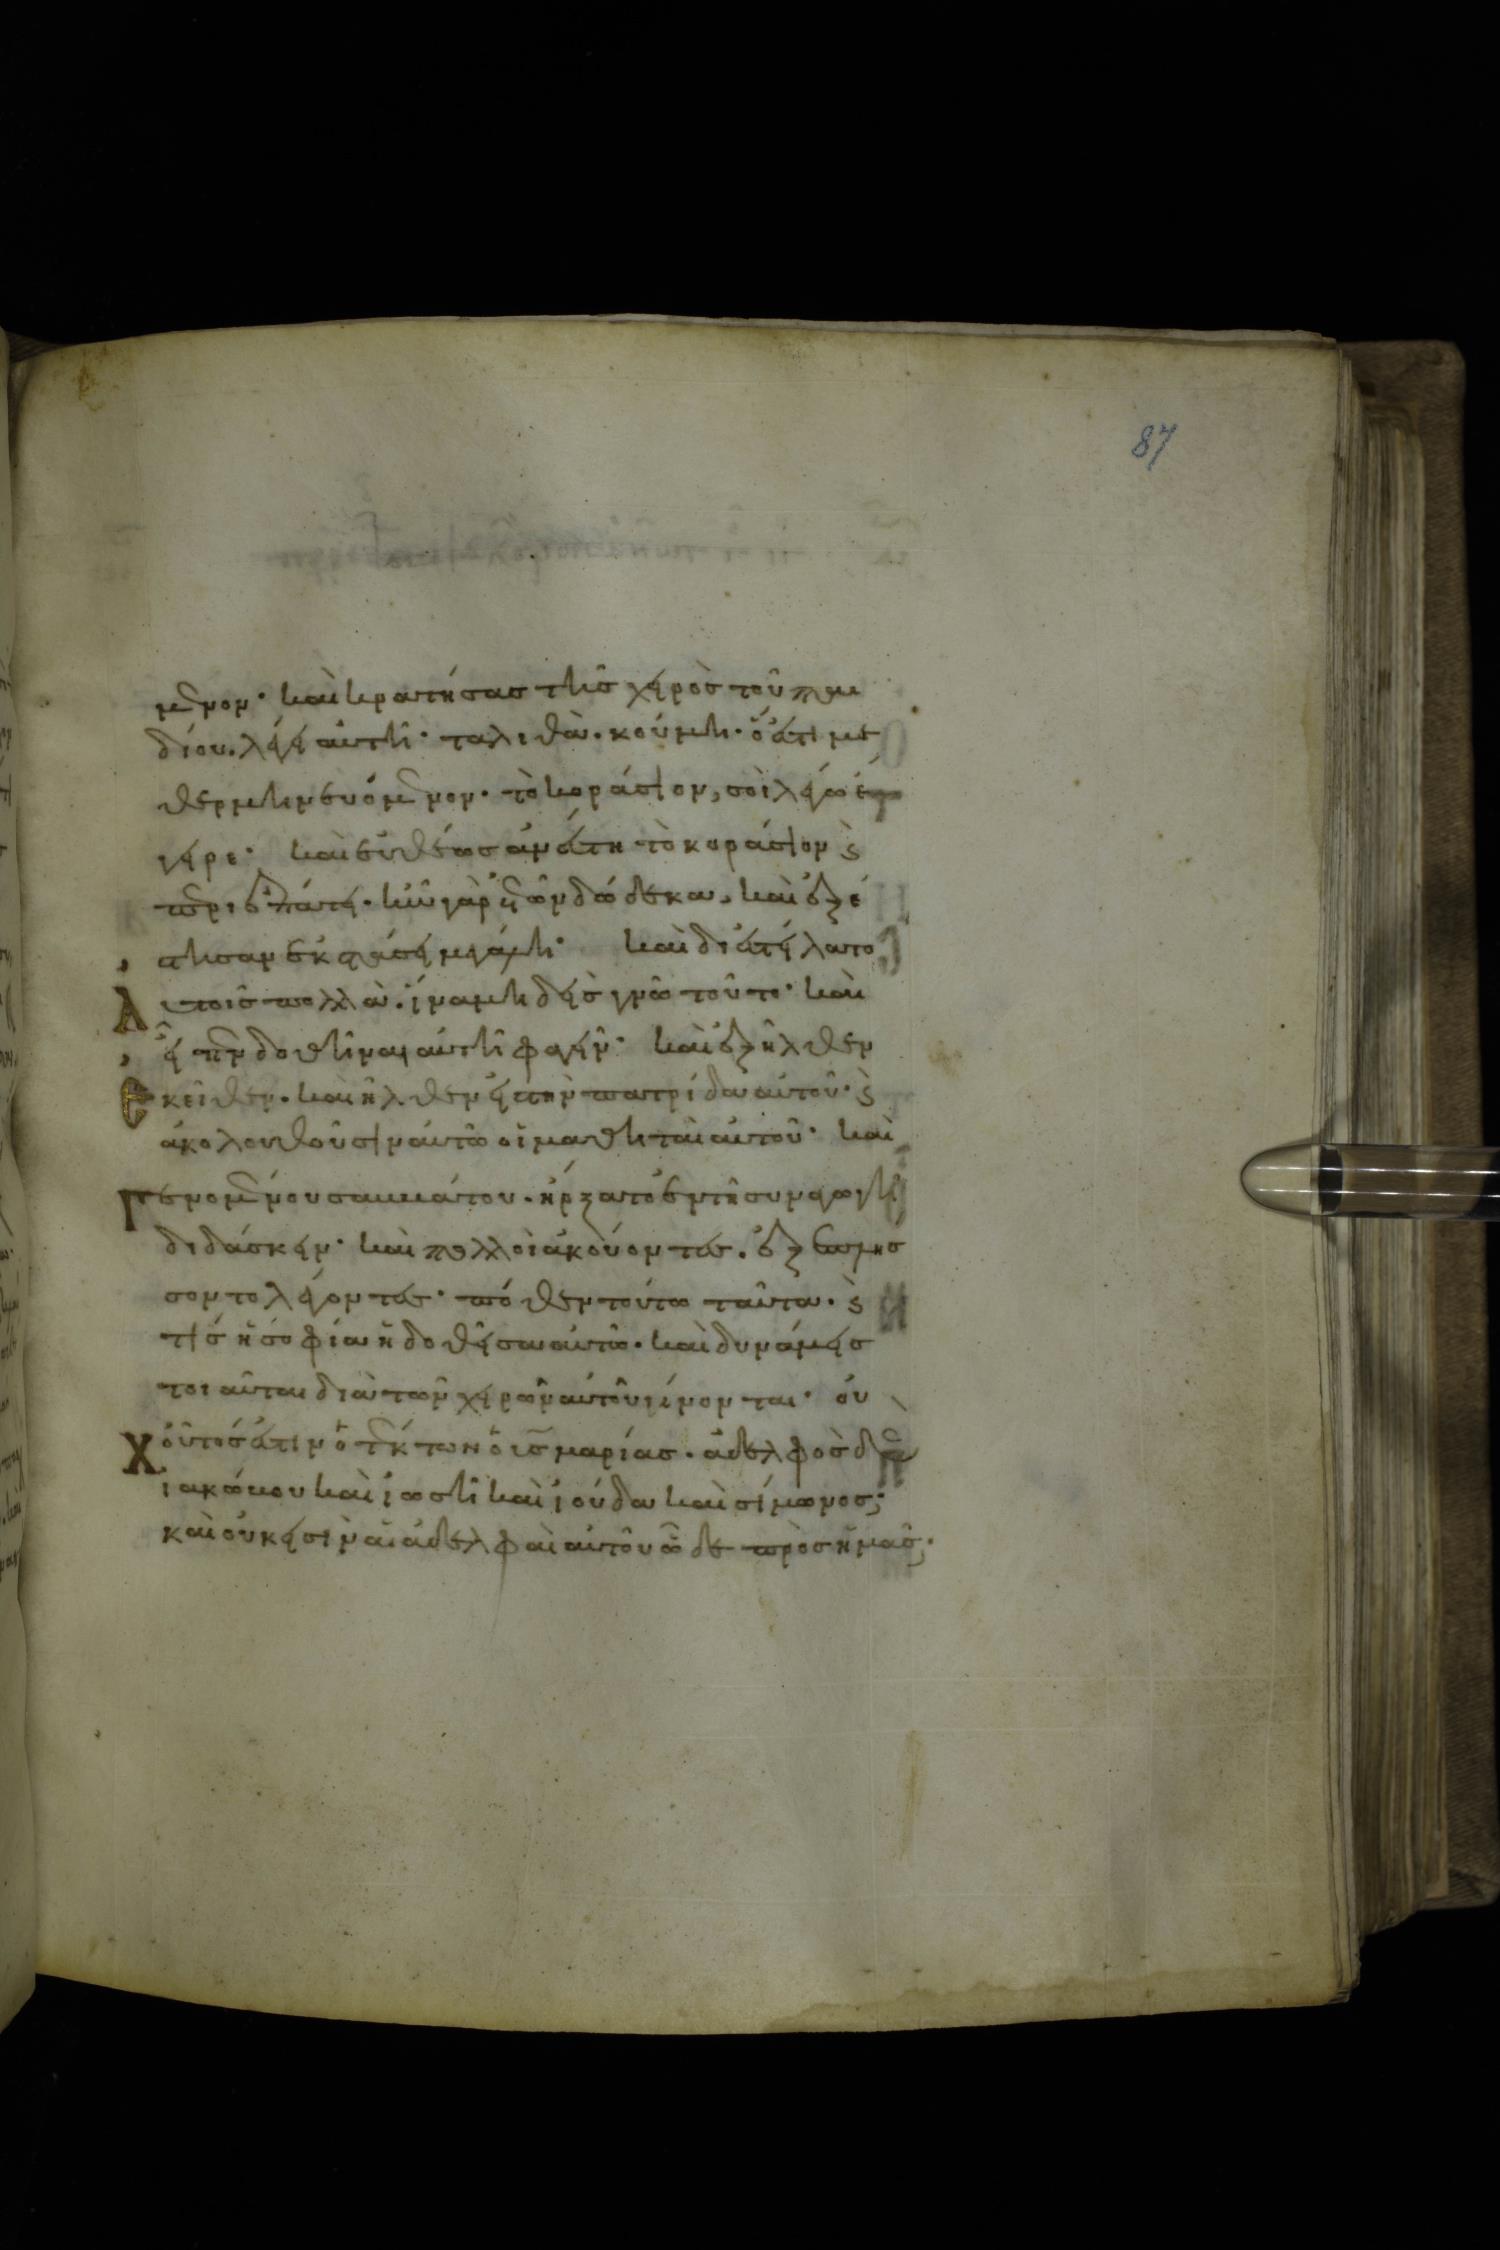 87
μενον· και κρατησας της χειρὸς τοῦ παι
δίου. λέγει αὐτῆ· ταλιθὰ. κούμη· ὅ ἐστι με
θερμηνευόμενον· τὸ κοράσιον, σοὶ λέγω ἔ
γειρε· καὶ εὐθέως ἀνέστη τὸ κοράσιον ϗ
περιεπάτει. ἦν γὰρ ἐτῶν δώδεκα, καὶ ἐξέ
στησαν ἐκστάσει μεγάλη· καὶ διεστείλατο
αυτοῖς πολλὰ. ἵνα μηδεὶς γνῶ τοῦτο· καὶ
εἶπεν δοθῆναι αὐτῆ φαγεῖν· καὶ ἐξῆλθεν
ἐκεῖθεν. καὶ ἦλθεν εἰς τὴν πατρίδα αὐτοῦ· ϗ
ἀκολουθοῦσιν αὐτῶ οἱ μαθηταὶ αὐτοῦ· καὶ
γενομένου σαββάτου. ἤρξατο ἐν τῆ συναγωγῆ
διδάσκειν· καὶ πολλοὶ ἀκούοντες. ἐξεπλήσ
σοντο λέγοντες· πόθεν τούτω ταῦτα. ϗ
τίς ἡ σοφία ἡ δοθεῖσα αὐτῶ. καὶ δυνάμεις
τοιαῦται διὰ τῶν χειρῶν αὐτοῦ γίνονται· οὐ
χ οὗτός ἐστιν ὁ τέκτων ὁ υἱς μαρίας. ἀδελφὸς δὲ
ἰακώβου καὶ ἰωσῆ καὶ ἰούδα καὶ σίμωνος;
καὶ οὐκ εἰσὶν αἱ ἀδελφαὶ αὐτοῦ ὧδε πρὸς ἡμᾶς;